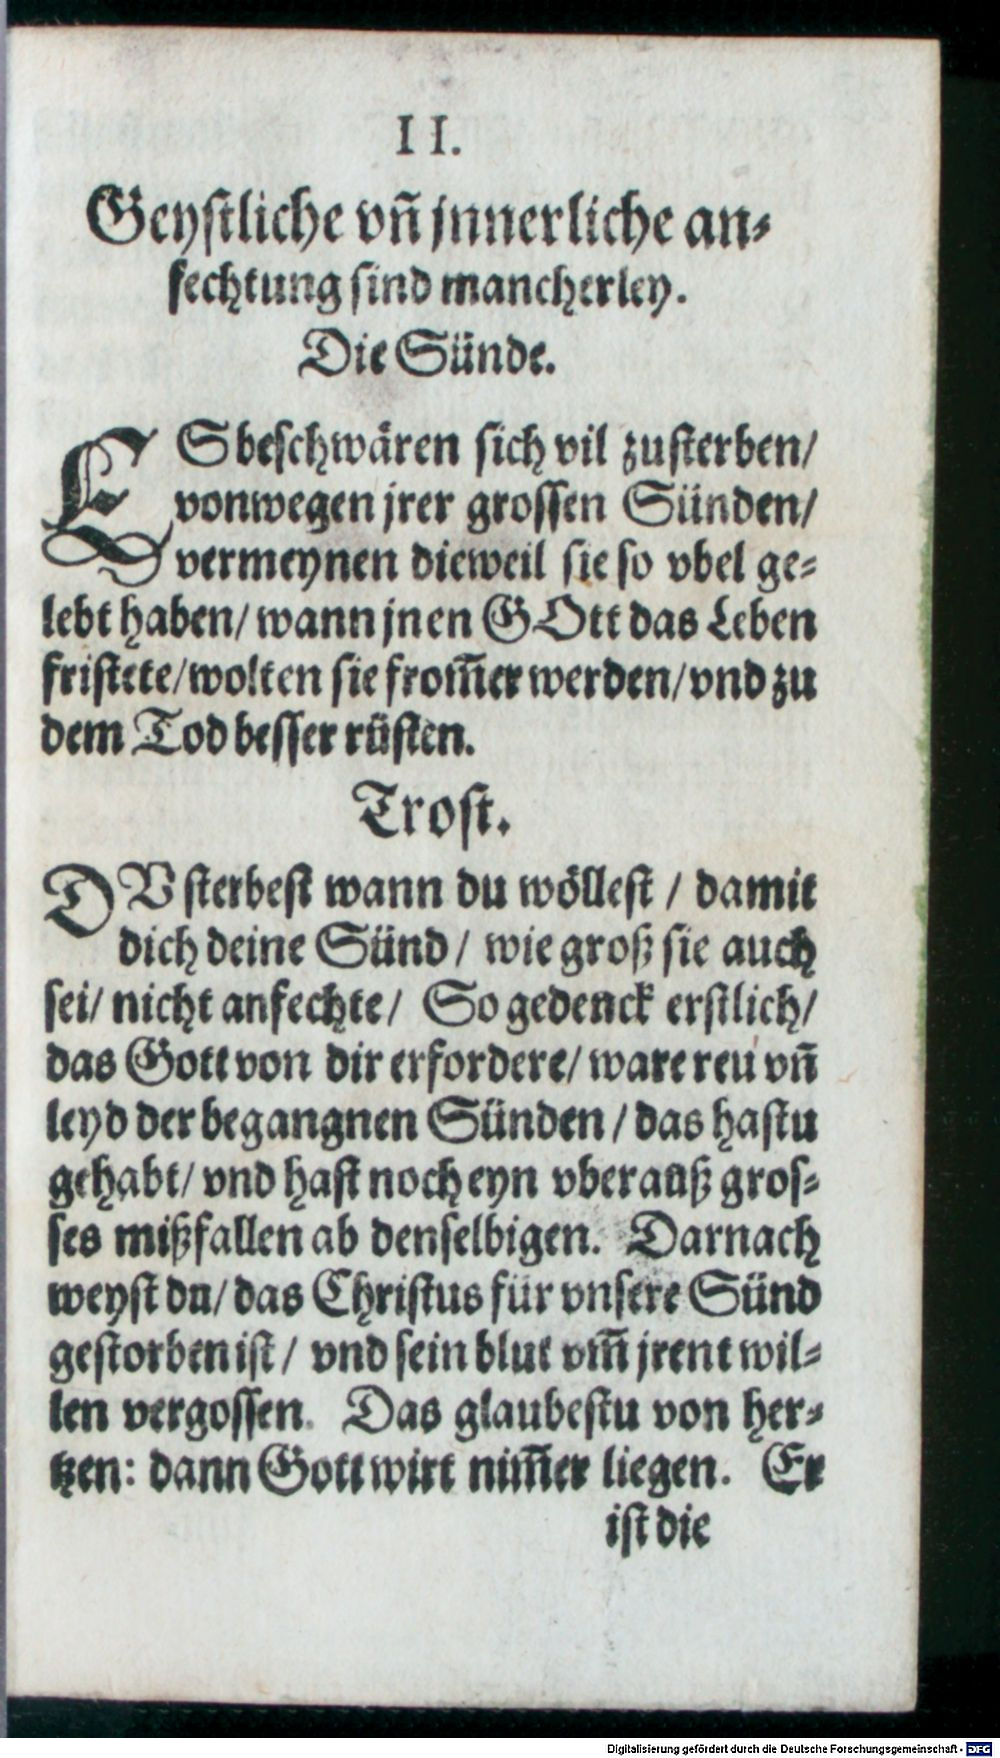 II.
Geystliche vñ jnnerliche an⸗
fechtung sind mancherley.
Die Sünde.
ES beschwären sich vil zusterben/
vonwegen jrer grossen Sünden/
vermeynen dieweil sie so vbel ge⸗
lebt haben/ wann jnen GOtt das Leben
fristete/ wolten sie from̄er werden/ vnd zu
dem Tod besser rüsten.
Trost.
DV sterbest wann du wöllest / damit
dich deine Sünd / wie groß sie auch
sei/ nicht anfechte/ So gedenck erstlich/
das Gott von dir erfordere/ ware reu vñ
leyd der begangnen Sünden / das hastu
gehabt/ vnd hast noch eyn vberauß gros⸗
ses mißfallen ab denselbigen. Darnach
weyst du/ das Christus für vnsere Sünd
gestorben ist / vnd sein blut vm̄ jrent wil⸗
len vergossen. Das glaubestu von her⸗
tzen: dann Gott wirt nim̄er liegen. Er
ist die
Digitalisierung gefördert durch die Deutsche Forschungsgemeinschaft - DFG